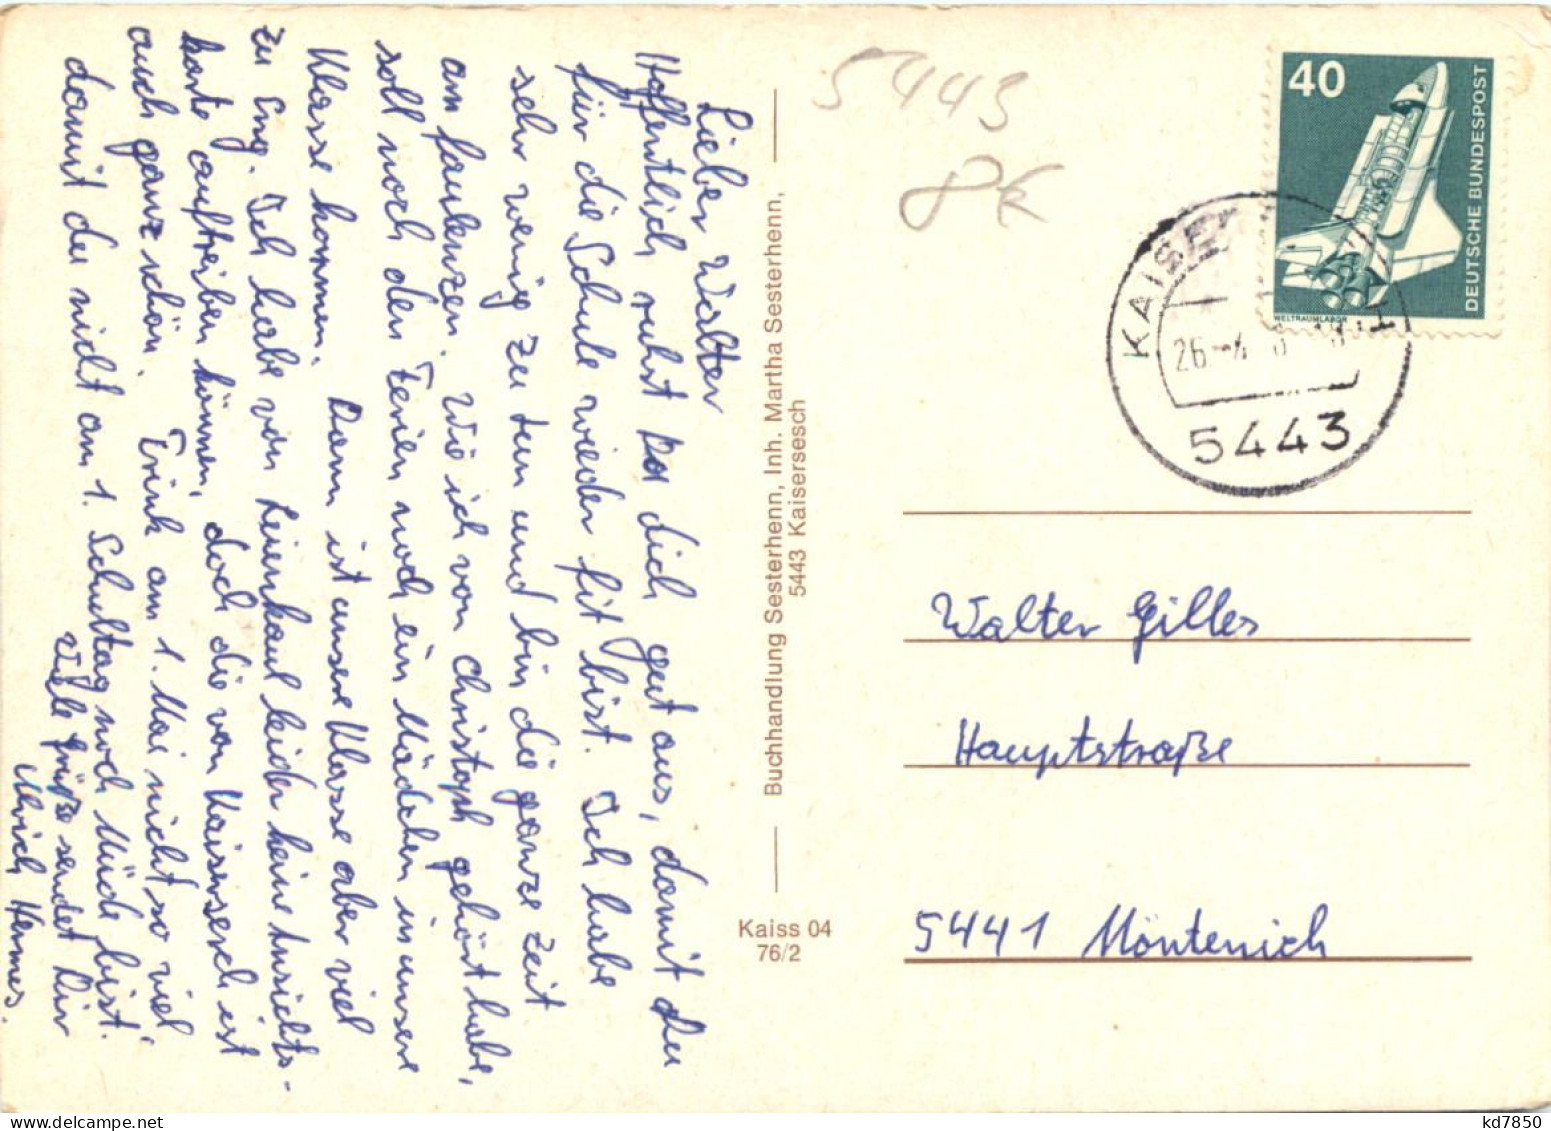 Lieber Walter
Hoffentlich ruhst du dich gut aus, damit du
für die Schule wieder fit bist. Ich habe
sehr wenig zu tun und bin die ganze Zeit
am faulenzen. Wie ich von Christoph gehört habe,
soll noch den Ferien noch ein Mädchen in unsere
Klasse kommen. Dann ist unsere Klasse aber viel
zu Eng. Ich habe von Leienkaul leider keine Ansichts-
karte auftreiben können, doch die von Kaisersesch ist
auch ganz schön. Trink am 1. Mai nicht so viel
damit du nicht am 1. Schultag noch Müde bist.
Viele Grüße sendet Dir
Ulrich Hermes.
Buchhandlung Sesterhenn, Inh. Martha Sesterhenn,
5443 Kaisersesch
Kaiss 04
76/2
5443
40
DEUTSCHE BUNDESPOST
WELTRAUMLABOR
5443
Walter Gilles
Hauptstraße
5441 Möntenich
kd7850